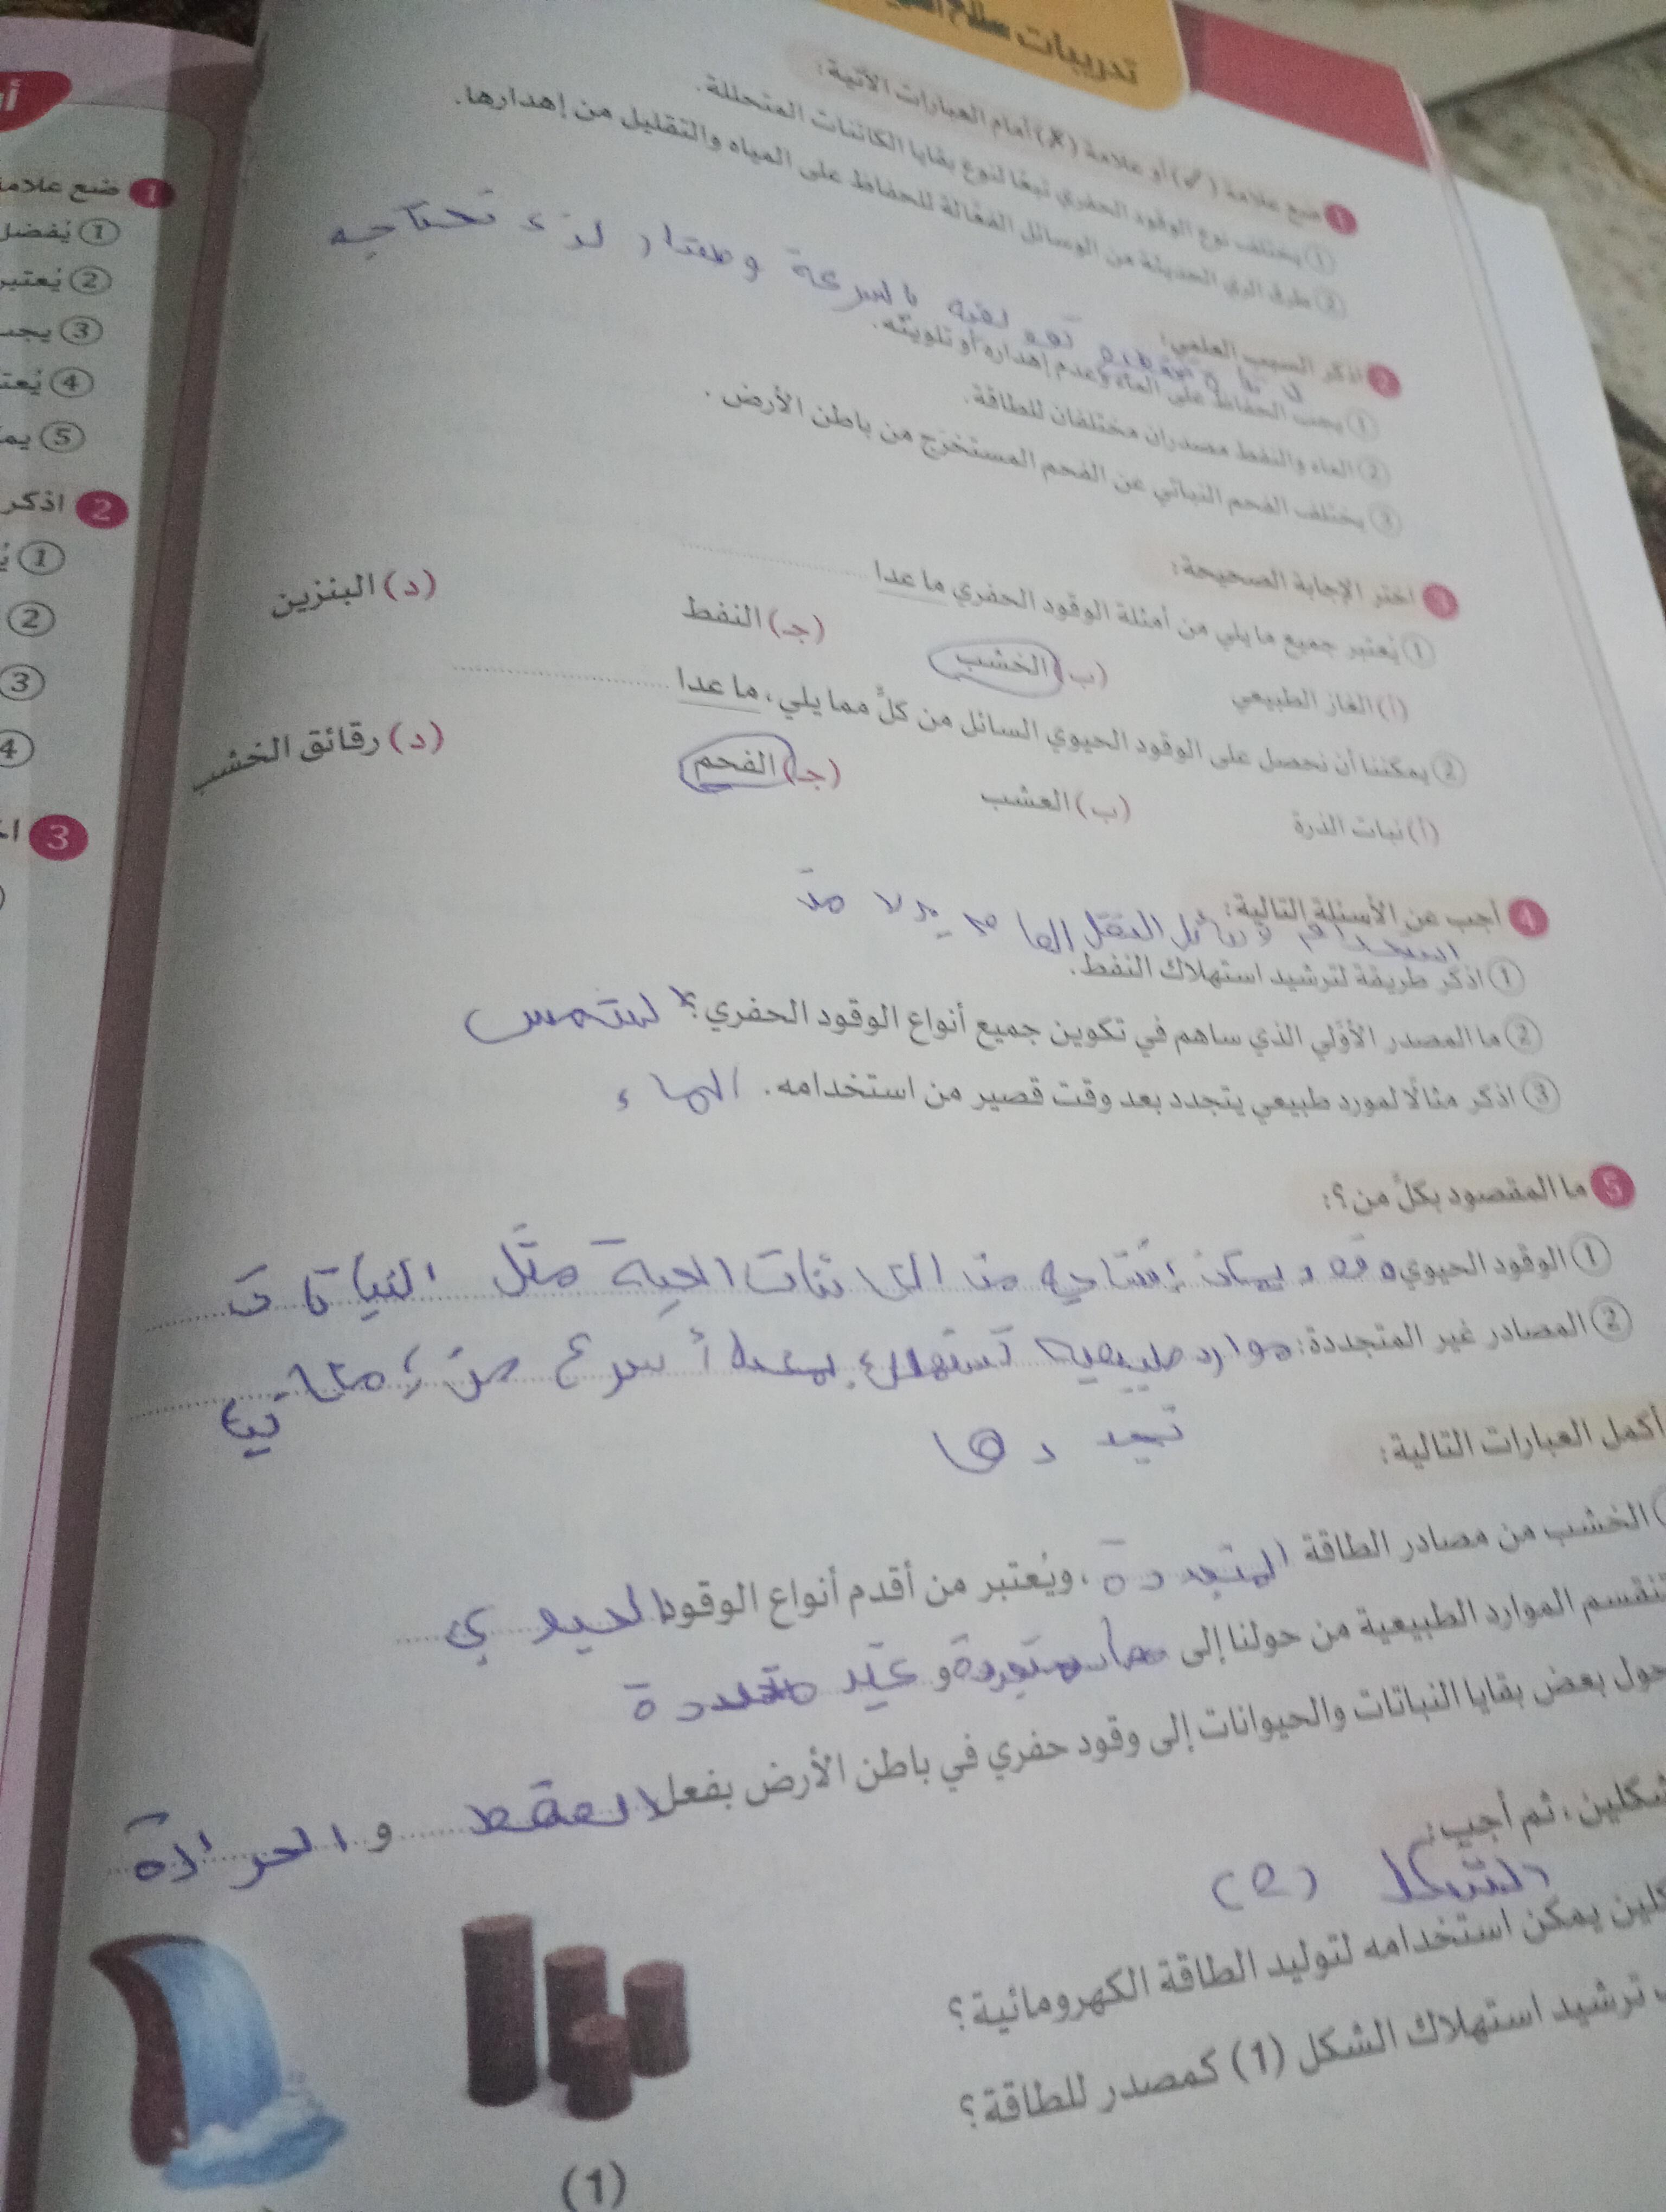 تدريبات سلاح
1 ضع علامة (✓) أو علامة (✗) أمام العبارات الآتية:
① يختلف نوع الوقود الحفري تبعًا لنوع بقايا الكائنات المتحللة.
② طرق الري الحديثة من الوسائل الفعالة للحفاظ على المياه والتقليل من إهدارها.
2 اذكر السبب العلمي:
بالسرعة تحتاجه
① يجب الحفاظ على الماء وعدم إهداره أو تلويثه.
② الماء والنفط مصدران مختلفان للطاقة.
③ يختلف الفحم النباتي عن الفحم المستخرج من باطن الأرض.
3 اختر الإجابة الصحيحة:
① يُعتبر جميع ما يلي من أمثلة الوقود الحفري ما عدا
(أ) الغاز الطبيعي (ب) الخشب (جـ) النفط (د) البنزين
② يمكننا أن نحصل على الوقود الحيوي السائل من كلٍّ مما يلي، ما عدا
(أ) نبات الذرة (ب) العشب (جـ) الفحم (د) رقائق الخشب
4 أجب عن الأسئلة التالية:
استخدام وسائل النقل
① اذكر طريقة لترشيد استهلاك النفط.
② ما المصدر الأوَّلي الذي ساهم في تكوين جميع أنواع الوقود الحفري؟ الشمس
③ اذكر مثالًا لمورد طبيعي يتجدد بعد وقت قصير من استخدامه. الماء
5 ما المقصود بكلٍّ من؟:
① الوقود الحيوي وقود يمكن إنتاجه من الكائنات الحية مثل النباتات
② المصادر غير المتجددة: موارد طبيعية تستهلك بمعدل أسرع من إمكانية
تجددها
أكمل العبارات التالية:
الخشب من مصادر الطاقة المتجددة، ويُعتبر من أقدم أنواع الوقود الحيوي
تنقسم الموارد الطبيعية من حولنا إلى متجددة و غير متجددة
حول بعض بقايا النباتات والحيوانات إلى وقود حفري في باطن الأرض بفعل الضغط و الحرارة
شكلين، ثم أجب:
الشكل
كلين يمكن استخدامه لتوليد الطاقة الكهرومائية؟
ترشيد استهلاك الشكل (1) كمصدر للطاقة؟
(1)
1 ضع علامة
① يُفضل
② يُعتبر
③ يجب
④
⑤
2 اذكر
①
②
③
④
3